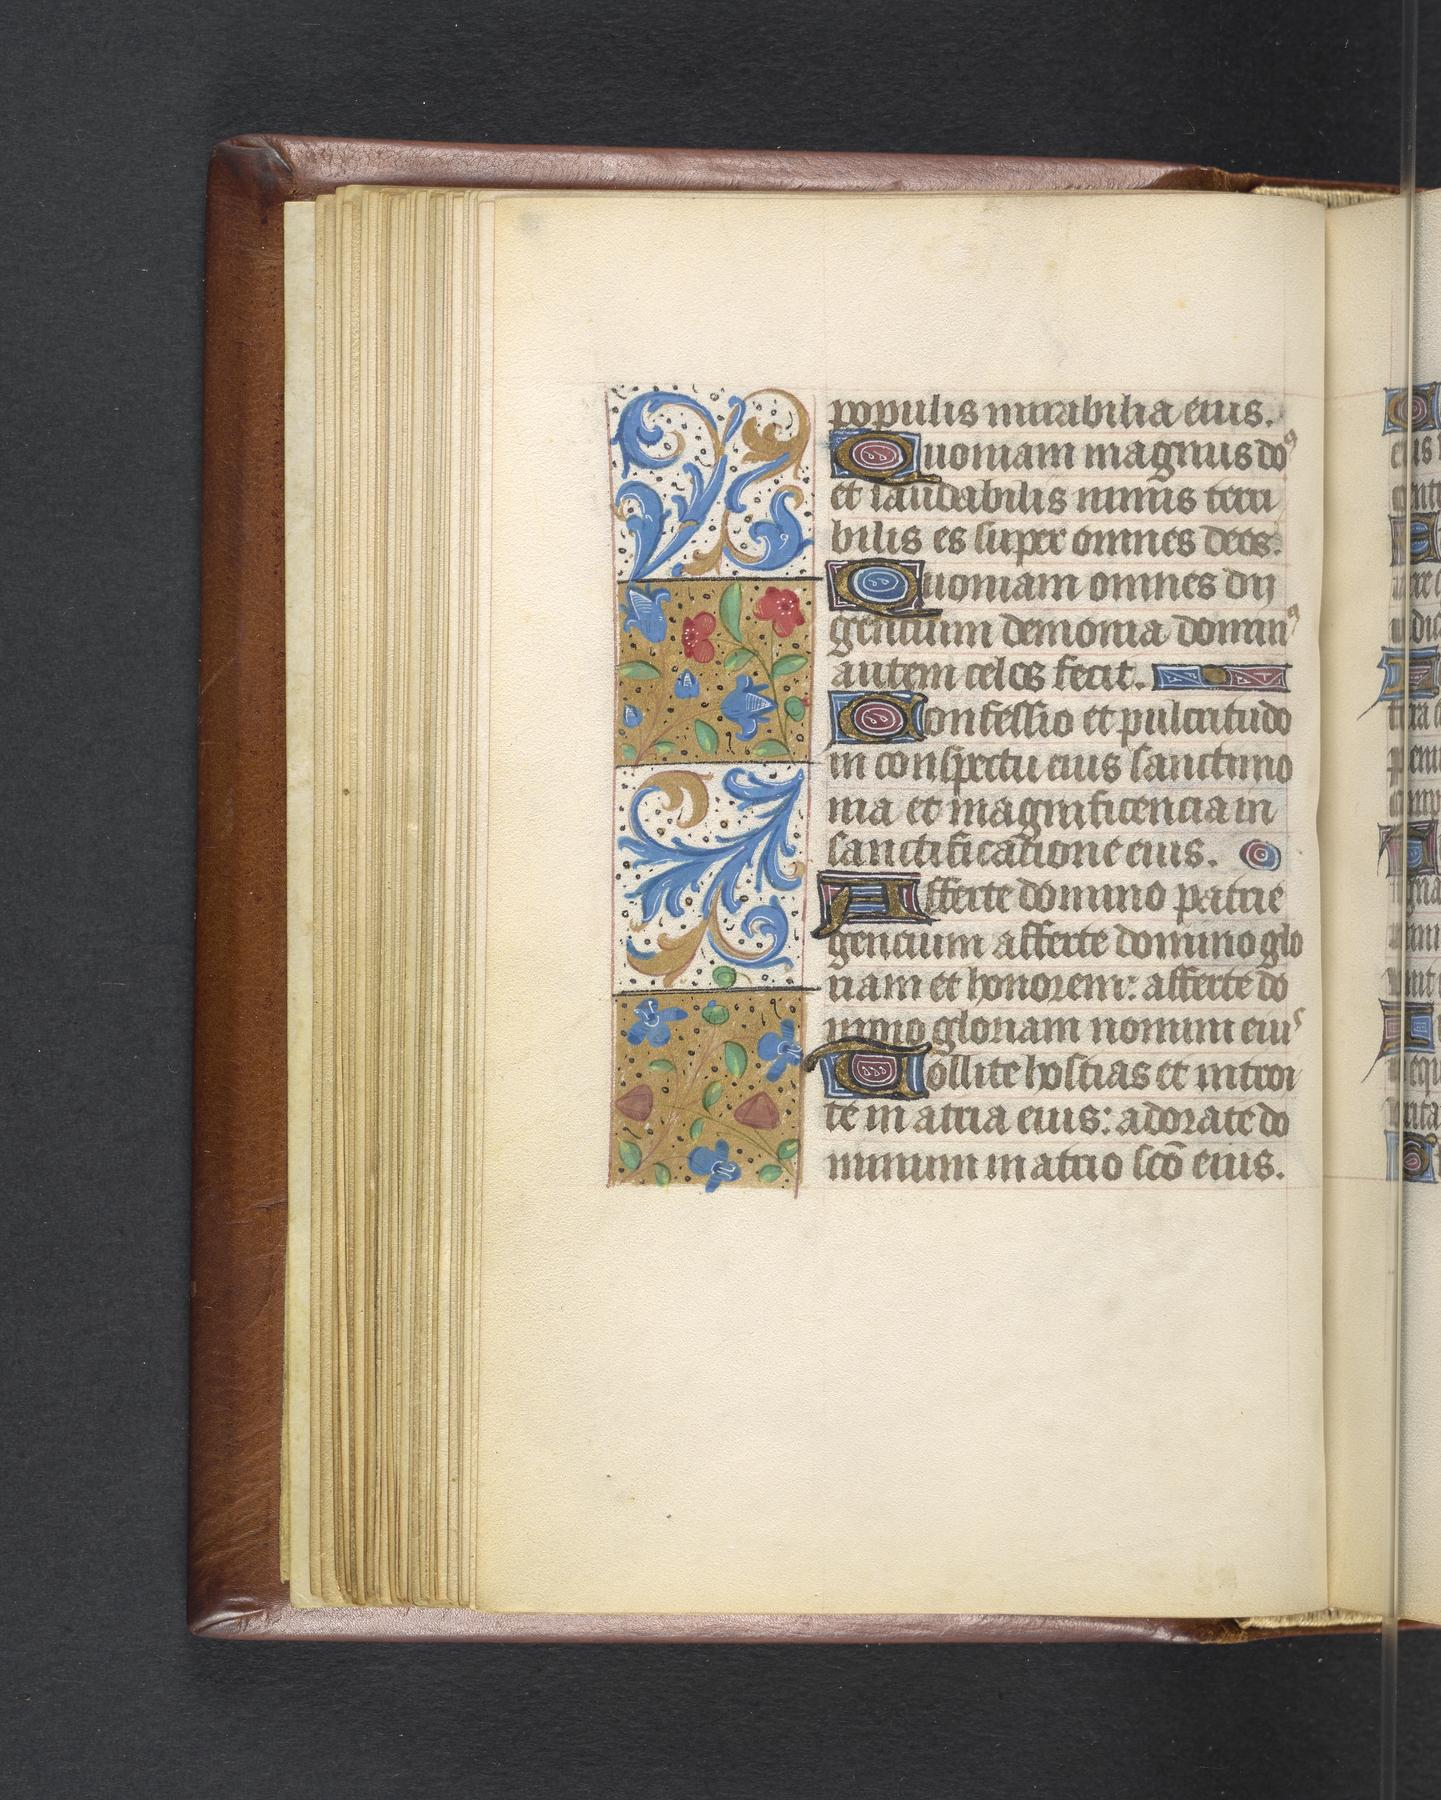 populis mirabilia eius.
Quoniam magnus doꝰ
et laudabilis nimis terri
bilis es super omnes deos.
Quoniam omnes dii
gentium demonia dominꝰ
autem celos fecit.
Confessio et pulcritudo
in conspectu eius sanctimo
nia et magnificencia in
sanctificatione eius.
Afferte domino patrie
gencium afferte domino glo
riam et honorem: afferte do
mino gloriam nomini eius
Tollite hostias et introi
te in atria eius: adorate do
minum in atrio scō eius.